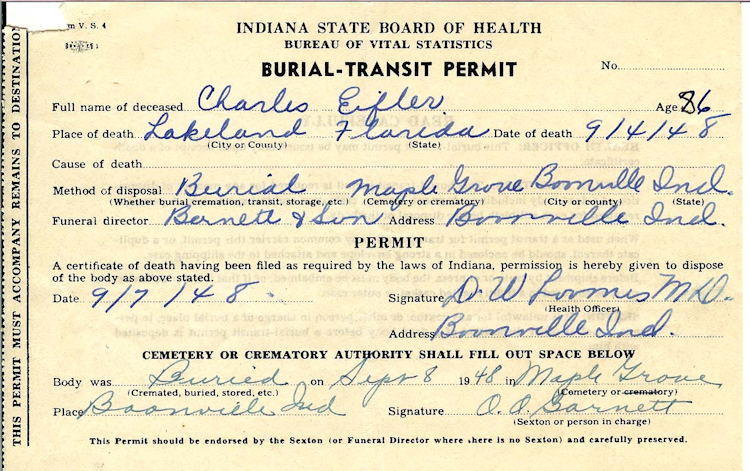 m V. S. 4
INDIANA STATE BOARD OF HEALTH
BUREAU OF VITAL STATISTICS
BURIAL-TRANSIT PERMIT
No.
Full name of deceased Charles Eifler Age 86
Place of death Lakeland Florida Date of death 9/4/48
(City or County) (State)
Cause of death
Method of disposal Burial Maple Grove Boonville Ind.
(Whether burial, cremation, transit, storage, etc.) (Cemetery or crematory) (City or county) (State)
Funeral director Barnett & Son Address Boonville Ind.
PERMIT
A certificate of death having been filed as required by the laws of Indiana, permission is hereby given to dispose
of the body as above stated.
Date 9/7/48 Signature D. W. Loomis M.D.
(Health Officer)
Address Boonville Ind.
CEMETERY OR CREMATORY AUTHORITY SHALL FILL OUT SPACE BELOW
Body was Buried on Sept 8 1948 in Maple Grove
(Cremated, buried, stored, etc.) (Cemetery or crematory)
Place Boonville Ind Signature O. O. Barnett
(Sexton or person in charge)
This Permit should be endorsed by the Sexton (or Funeral Director where there is no Sexton) and carefully preserved.
THIS PERMIT MUST ACCOMPANY REMAINS TO DESTINATION